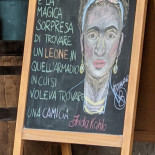 E LA
MAGICA
SORPRESA
DI TROVARE
UN LEONE IN
QUELL'ARMADIO
IN CUI SI
VOLEVA TROVARE
UNA CAMICIA
Frida Kahlo